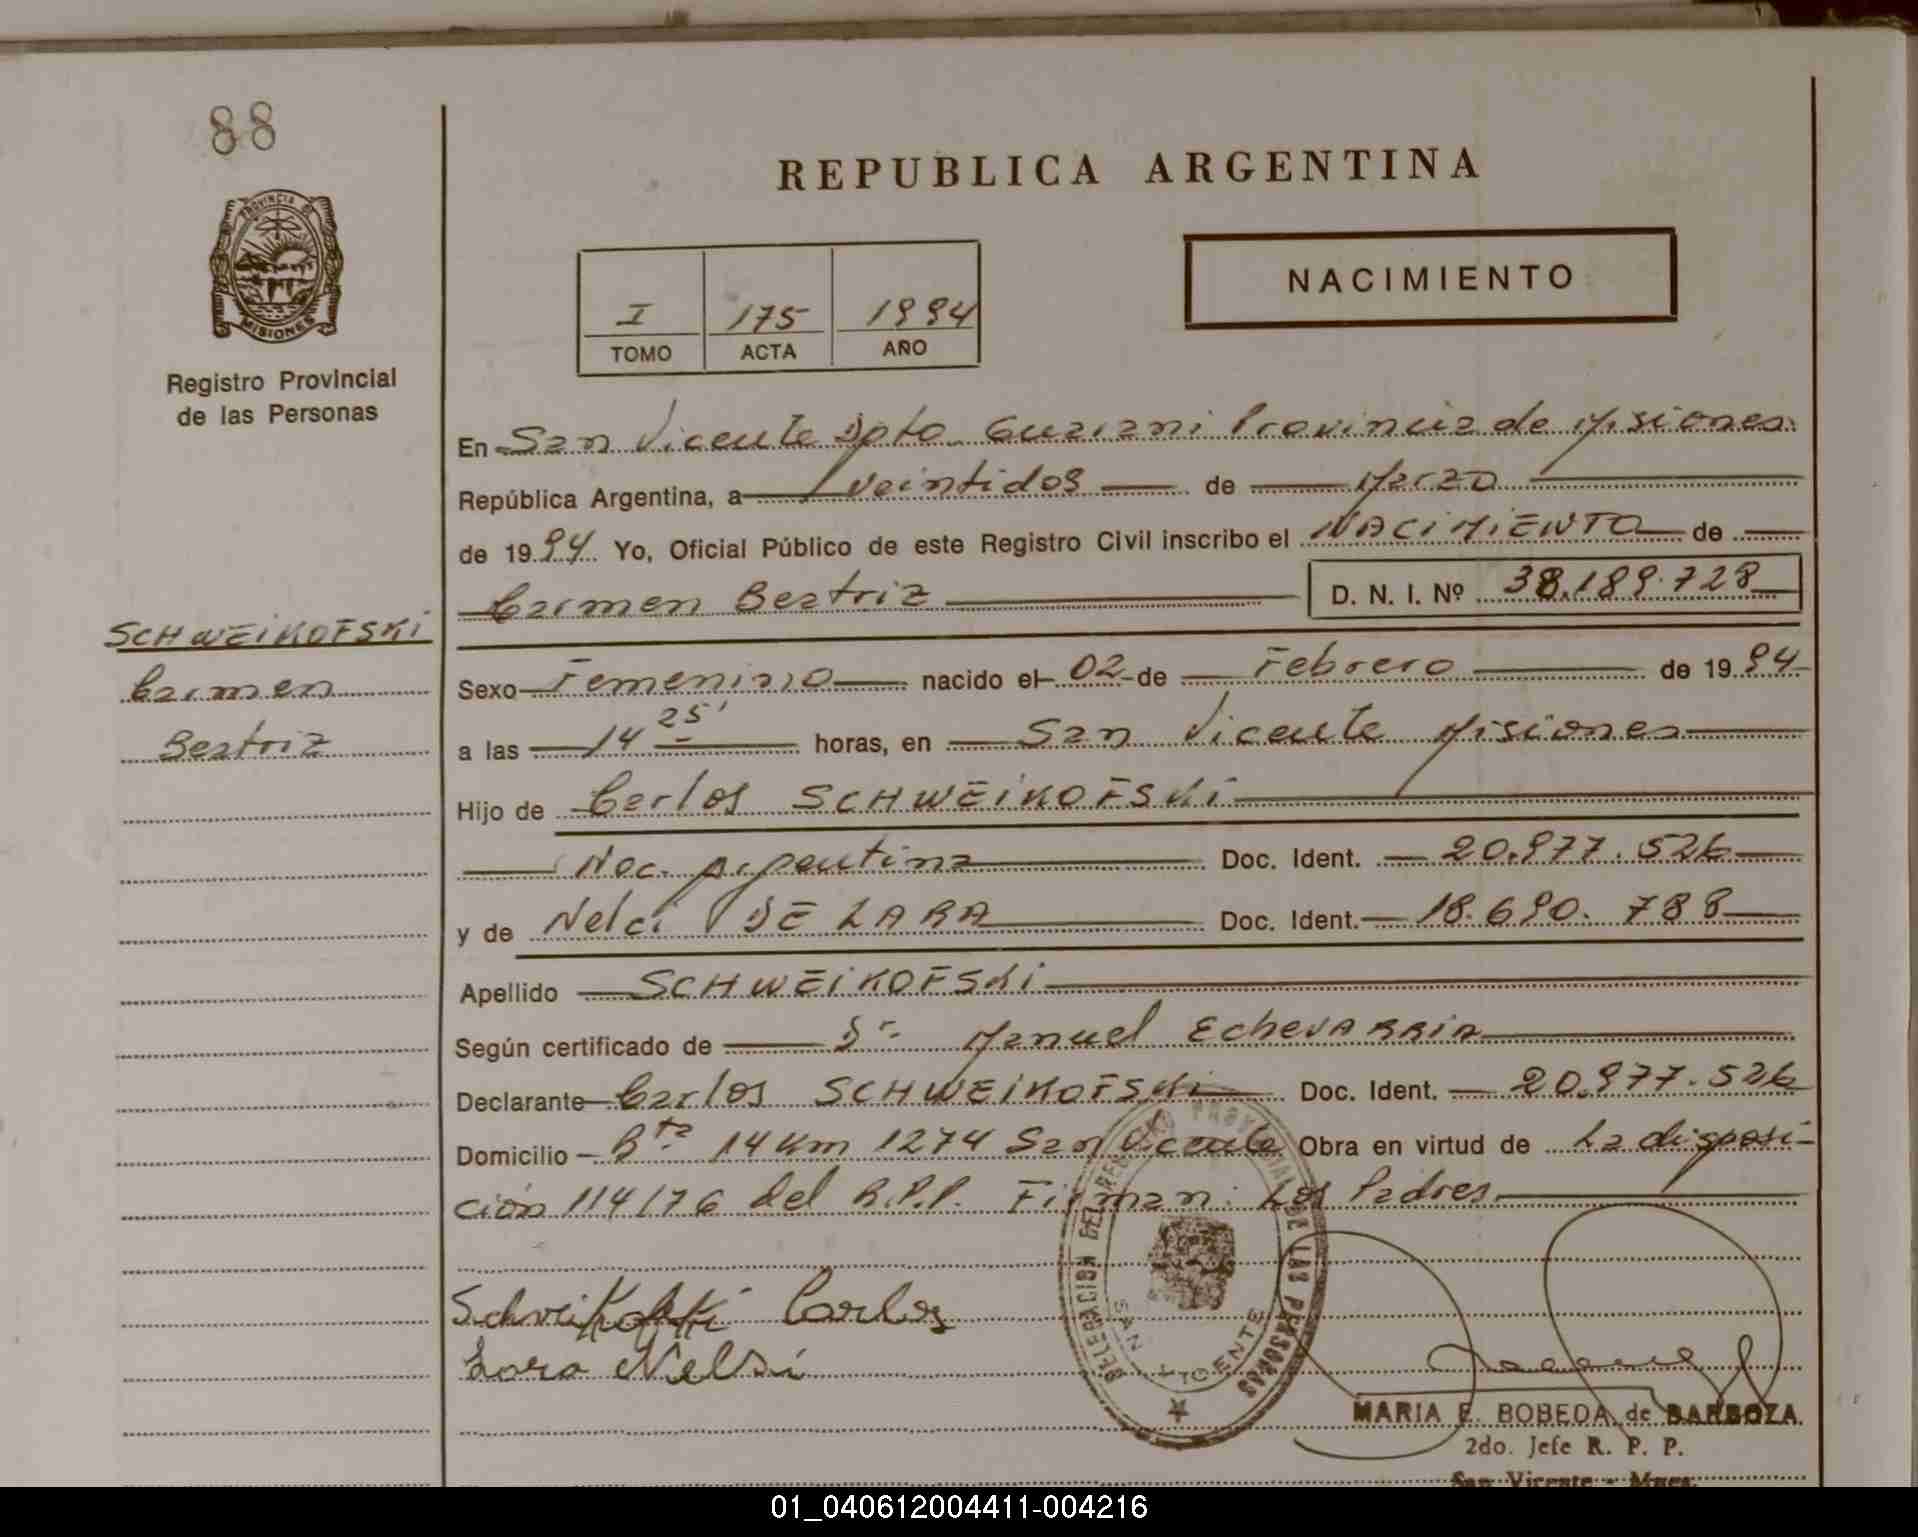 88
REPUBLICA ARGENTINA
PROVINCIA DE
MISIONES
NACIMIENTO
I 175 1994
TOMO ACTA AÑO
Registro Provincial
de las Personas
En San Vicente Dpto. Guarani Provincia de Misiones
República Argentina, a veintidos de Marzo
de 1994 Yo, Oficial Público de este Registro Civil inscribo el NACIMIENTO de
Carmen Beatriz D. N. I. Nº 38.189.728
SCHWEIKOFSKI
Carmen
Beatriz
Sexo Femenino nacido el 02 de Febrero de 1994
a las 14 25' horas, en San Vicente Misiones
Hijo de Carlos SCHWEIKOFSKI
Nac. Argentina Doc. Ident. 20.977.526
y de Nelci DE LARA Doc. Ident. 18.690.788
Apellido SCHWEIKOFSKI
Según certificado de Dr. Manuel EchevARRIA
Declarante Carlos SCHWEIKOFSKI Doc. Ident. 20.977.526
Domicilio Rta 14 Km 1274 San Vicente Obra en virtud de La disposi-
ción 114/76 del R.P.P. Firman: Los Padres
Schveikofski Carlos
Lara Nelsi
DELEGACION DEL REGISTRO PROVINCIAL DE LAS PERSONAS
SAN VICENTE
MARIA E. BOBEDA de BARBOZA
2do. Jefe R. P. P.
San Vicente - Mnes.
01_040612004411-004216